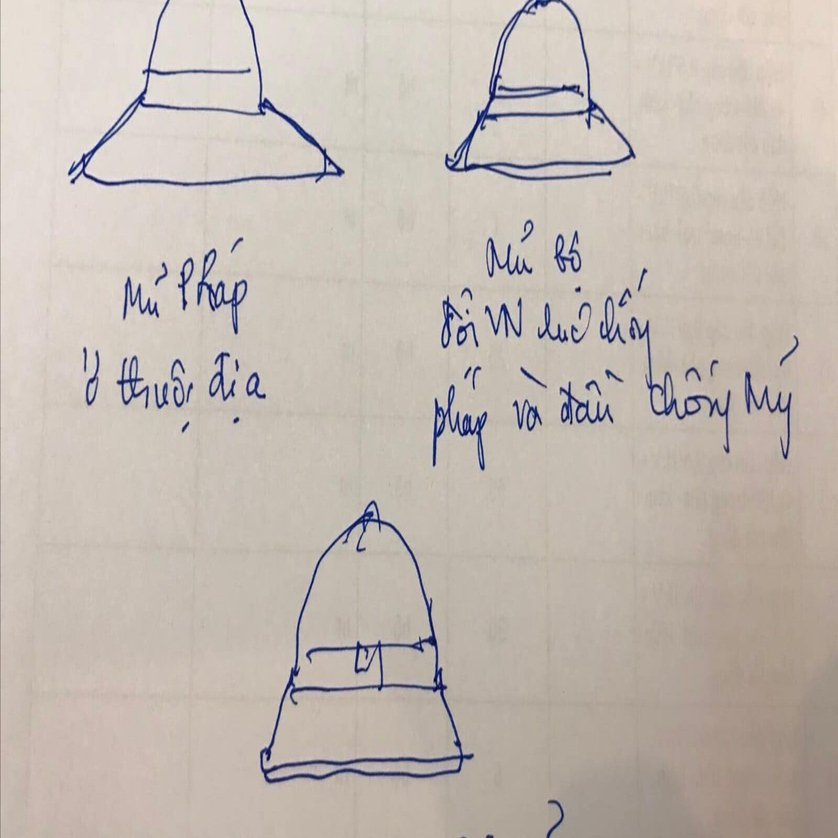 Mũ Pháp
ở thuộc địa
Mũ bộ
đội VN lúc chống
pháp và đầu chống Mỹ